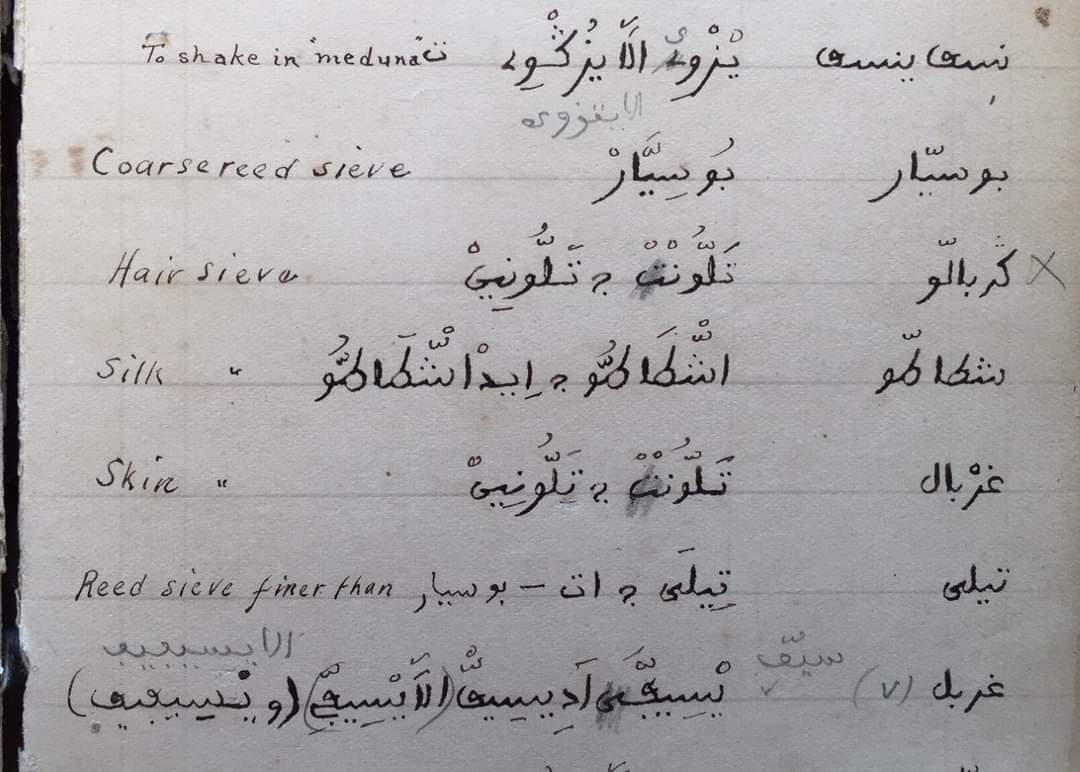 To shake in "meduna"ت يْزْوِى الَّا يزْكْوِى نسف ينسف
الايقزوى
Coarse reed sieve بُوسِيَّارْ بوسيّار
Hair sieve تَلُّونْتْ ج تَلُّونِينْ كربالّو
Silk " اشْكَاكمُّو ج اِيدْ اشْكَاكمُّو شكاكمّو
Skin " تَلُّونْتْ ج تِلُّونِينْ غرْبال
Reed sieve finer than بوسيار – ات ج تِيلَى تيلى
الايسيفيف سيّف
(و يْسيفيف) (الَّا يْسِيفّ) اَدِيسِيفّ يْسِيفّ غربل (v)